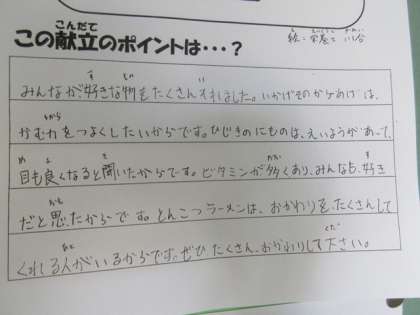 この献立のポイントは・・・？
こんだて
みんなが、好きな物をたくさん入れました。いかげそのかきあげは、
かむ力をつよくしたいからです。ひじきのにものは、えいようがあって、
目も良くなると聞いたからです。ビタミンが多くあり、みんなも好き
だと思ったからです。とんこつラーメンは、おかわりを、たくさんして
くれる人がいるからです。ぜひたくさん、おかわりして下さい。